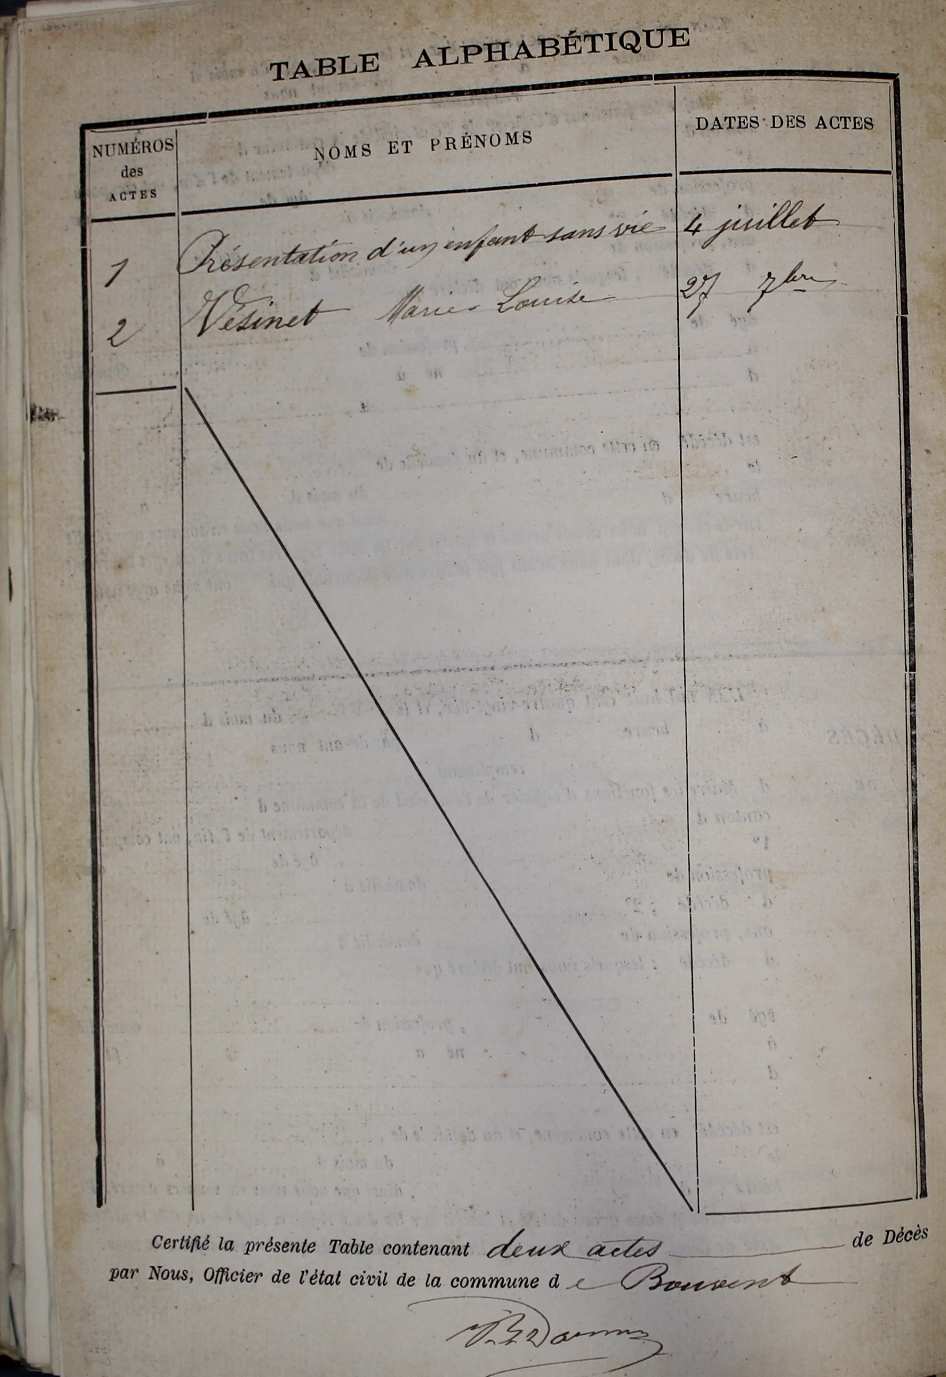 TABLE ALPHABÉTIQUE
NUMÉROS des ACTES
NOMS ET PRÉNOMS
DATES DES ACTES
1 Présentation d'un enfant sans vie 4 juillet
2 Vésinet Marie-Louise 27 7bre
Certifié la présente Table contenant deux actes de Décès
par Nous, Officier de l'état civil de la commune de Bouvent